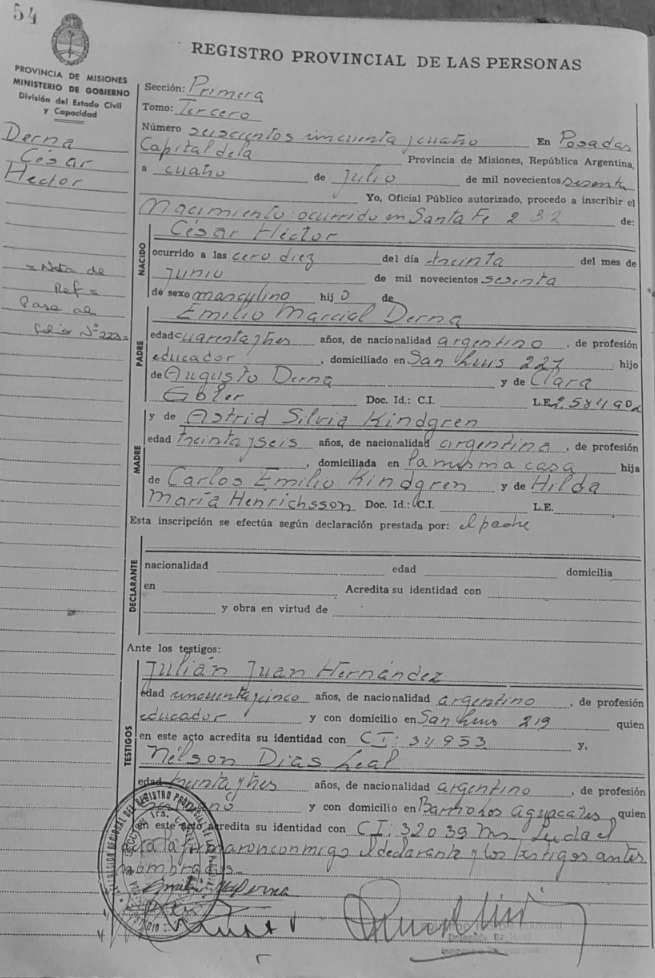 54
REGISTRO PROVINCIAL DE LAS PERSONAS
PROVINCIA DE MISIONES
MINISTERIO DE GOBIERNO
División del Estado Civil
y Capacidad
Derna
César
Hector
= Nota de
Ref =
Pasa al
folio Nº 223=
Sección: Primera
Tomo: Tercero
Número seiscientos cincuenta y cuatro En Posadas
Capital de la Provincia de Misiones, República Argentina,
a cuatro de Julio de mil novecientos sesenta
Yo, Oficial Público autorizado, procedo a inscribir el
Nacimiento: ocurrido en Santa Fe 232 de:
NACIDO
César Héctor
ocurrido a las cero diez del día treinta del mes de
Junio de mil novecientos sesenta
de sexo masculino hijo de
PADRE
Emilio Marcial Derna
edad cuarentaytres años, de nacionalidad argentino, de profesión
educador, domiciliado en San Luis 227 hijo
de Augusto Derna y de Clara
Gbler Doc. Id.: C.I. L.E.
MADRE
y de Astrid Silvia Kindgren
edad treintayseis años, de nacionalidad argentina, de profesión
, domiciliada en la misma casa hija
de Carlos Emilio Kindgren y de Hilda
María Henrichsson Doc. Id.: C.I. L.E.
Esta inscripción se efectúa según declaración prestada por: el padre
DECLARANTE
nacionalidad edad domicilia
en Acredita su identidad con
y obra en virtud de
Ante los testigos:
TESTIGOS
Julián Juan Hernández
edad cincuentaycinco años, de nacionalidad argentino, de profesión
educador y con domicilio en San Luis 219 quien
en este acto acredita su identidad con CI: 34953 y,
Nélson Dias Leal
edad treintaytres años, de nacionalidad argentino, de profesión
y con domicilio en Barrio Los Aguacates, quien
en este acto acredita su identidad con CI: 32039 Ms. Leida el
acta la firmaron conmigo el declarante y los testigos antes
nombrados.